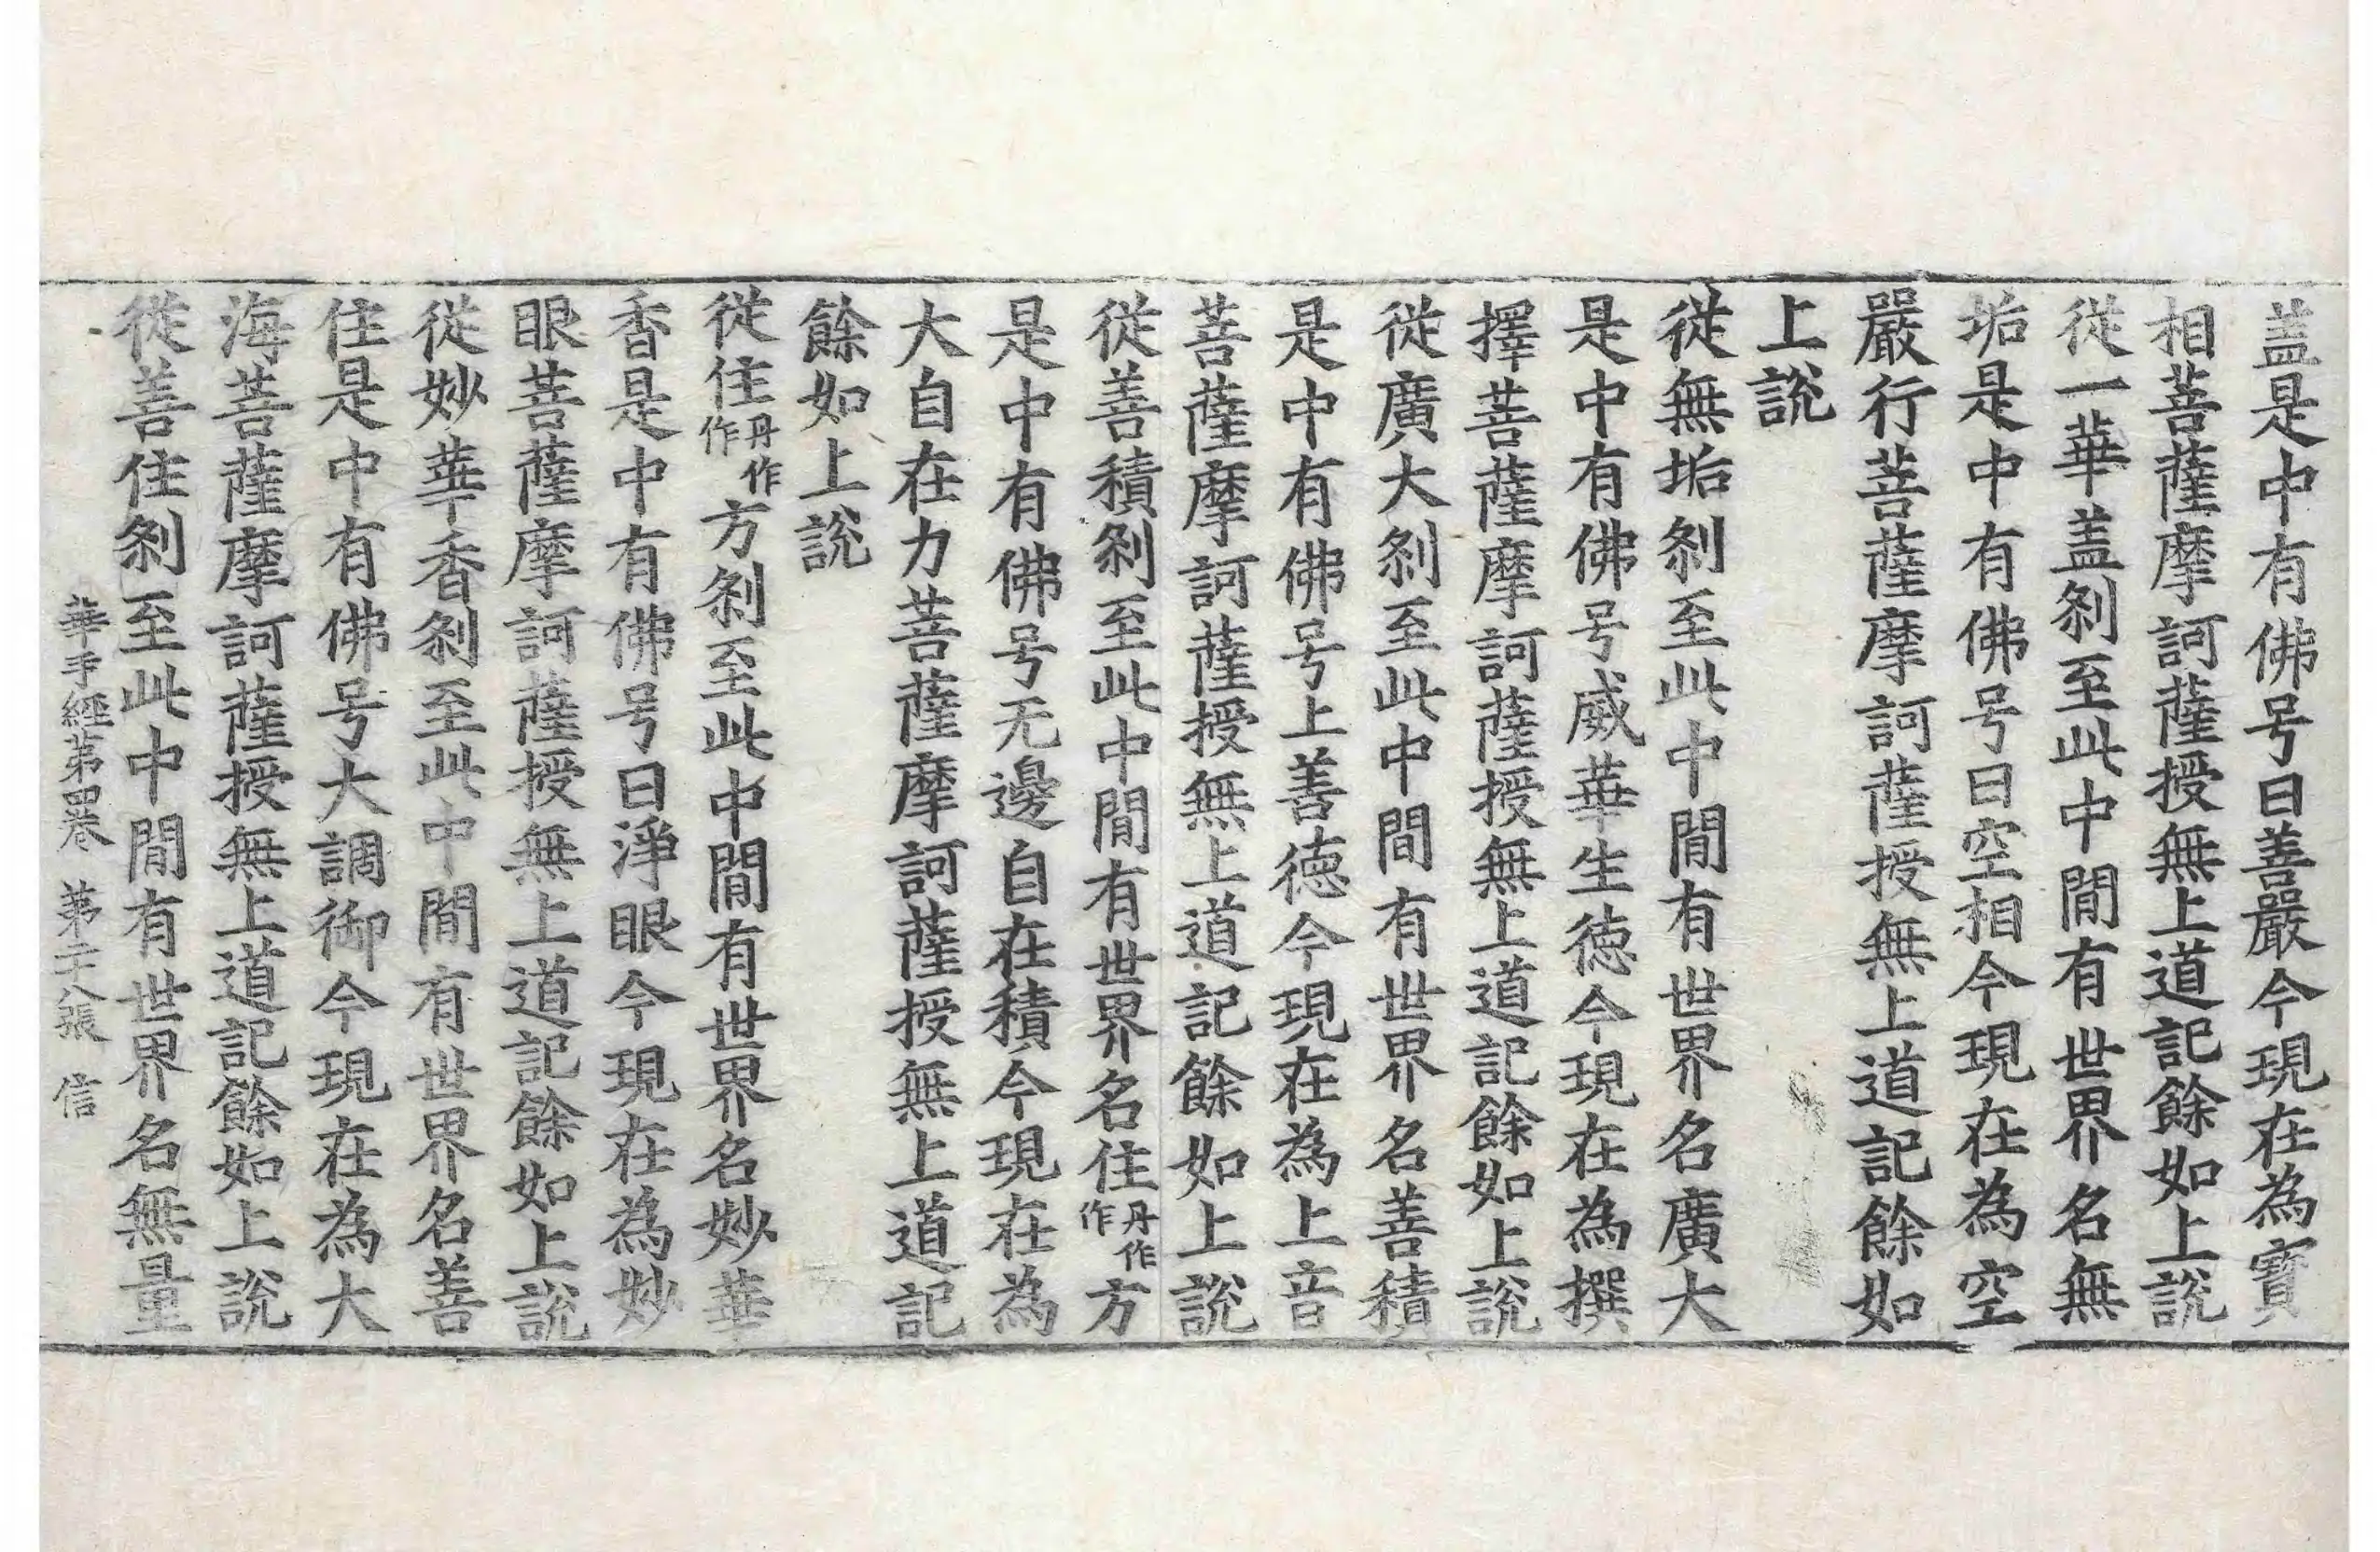 盖是中有佛号曰善嚴今現在為寶
相菩薩摩訶薩授無上道記餘如上說
從一華盖刹至此中閒有世界名無
垢是中有佛号曰空相今現在為空
嚴行菩薩摩訶薩授無上道記餘如
上說
從無垢刹至此中閒有世界名廣大
是中有佛号威華生徳今現在為撰
擇菩薩摩訶薩授無上道記餘如上說
從廣大刹至此中間有世界名善積
是中有佛号上善徳今現在為上音
菩薩摩訶薩授無上道記餘如上說
從善積刹至此中閒有世界名住丹作作方
是中有佛号无邊自在積今現在為
大自在力菩薩摩訶薩授無上道記
餘如上說
從住丹作作方刹至此中閒有世界名妙華
香是中有佛号曰淨眼今現在為妙
眼菩薩摩訶薩授無上道記餘如上說
從妙華香刹至此中閒有世界名善
住是中有佛号大調御今現在為大
海菩薩摩訶薩授無上道記餘如上說
從善住刹至此中閒有世界名無量
華手經第四卷 第二十八張 信